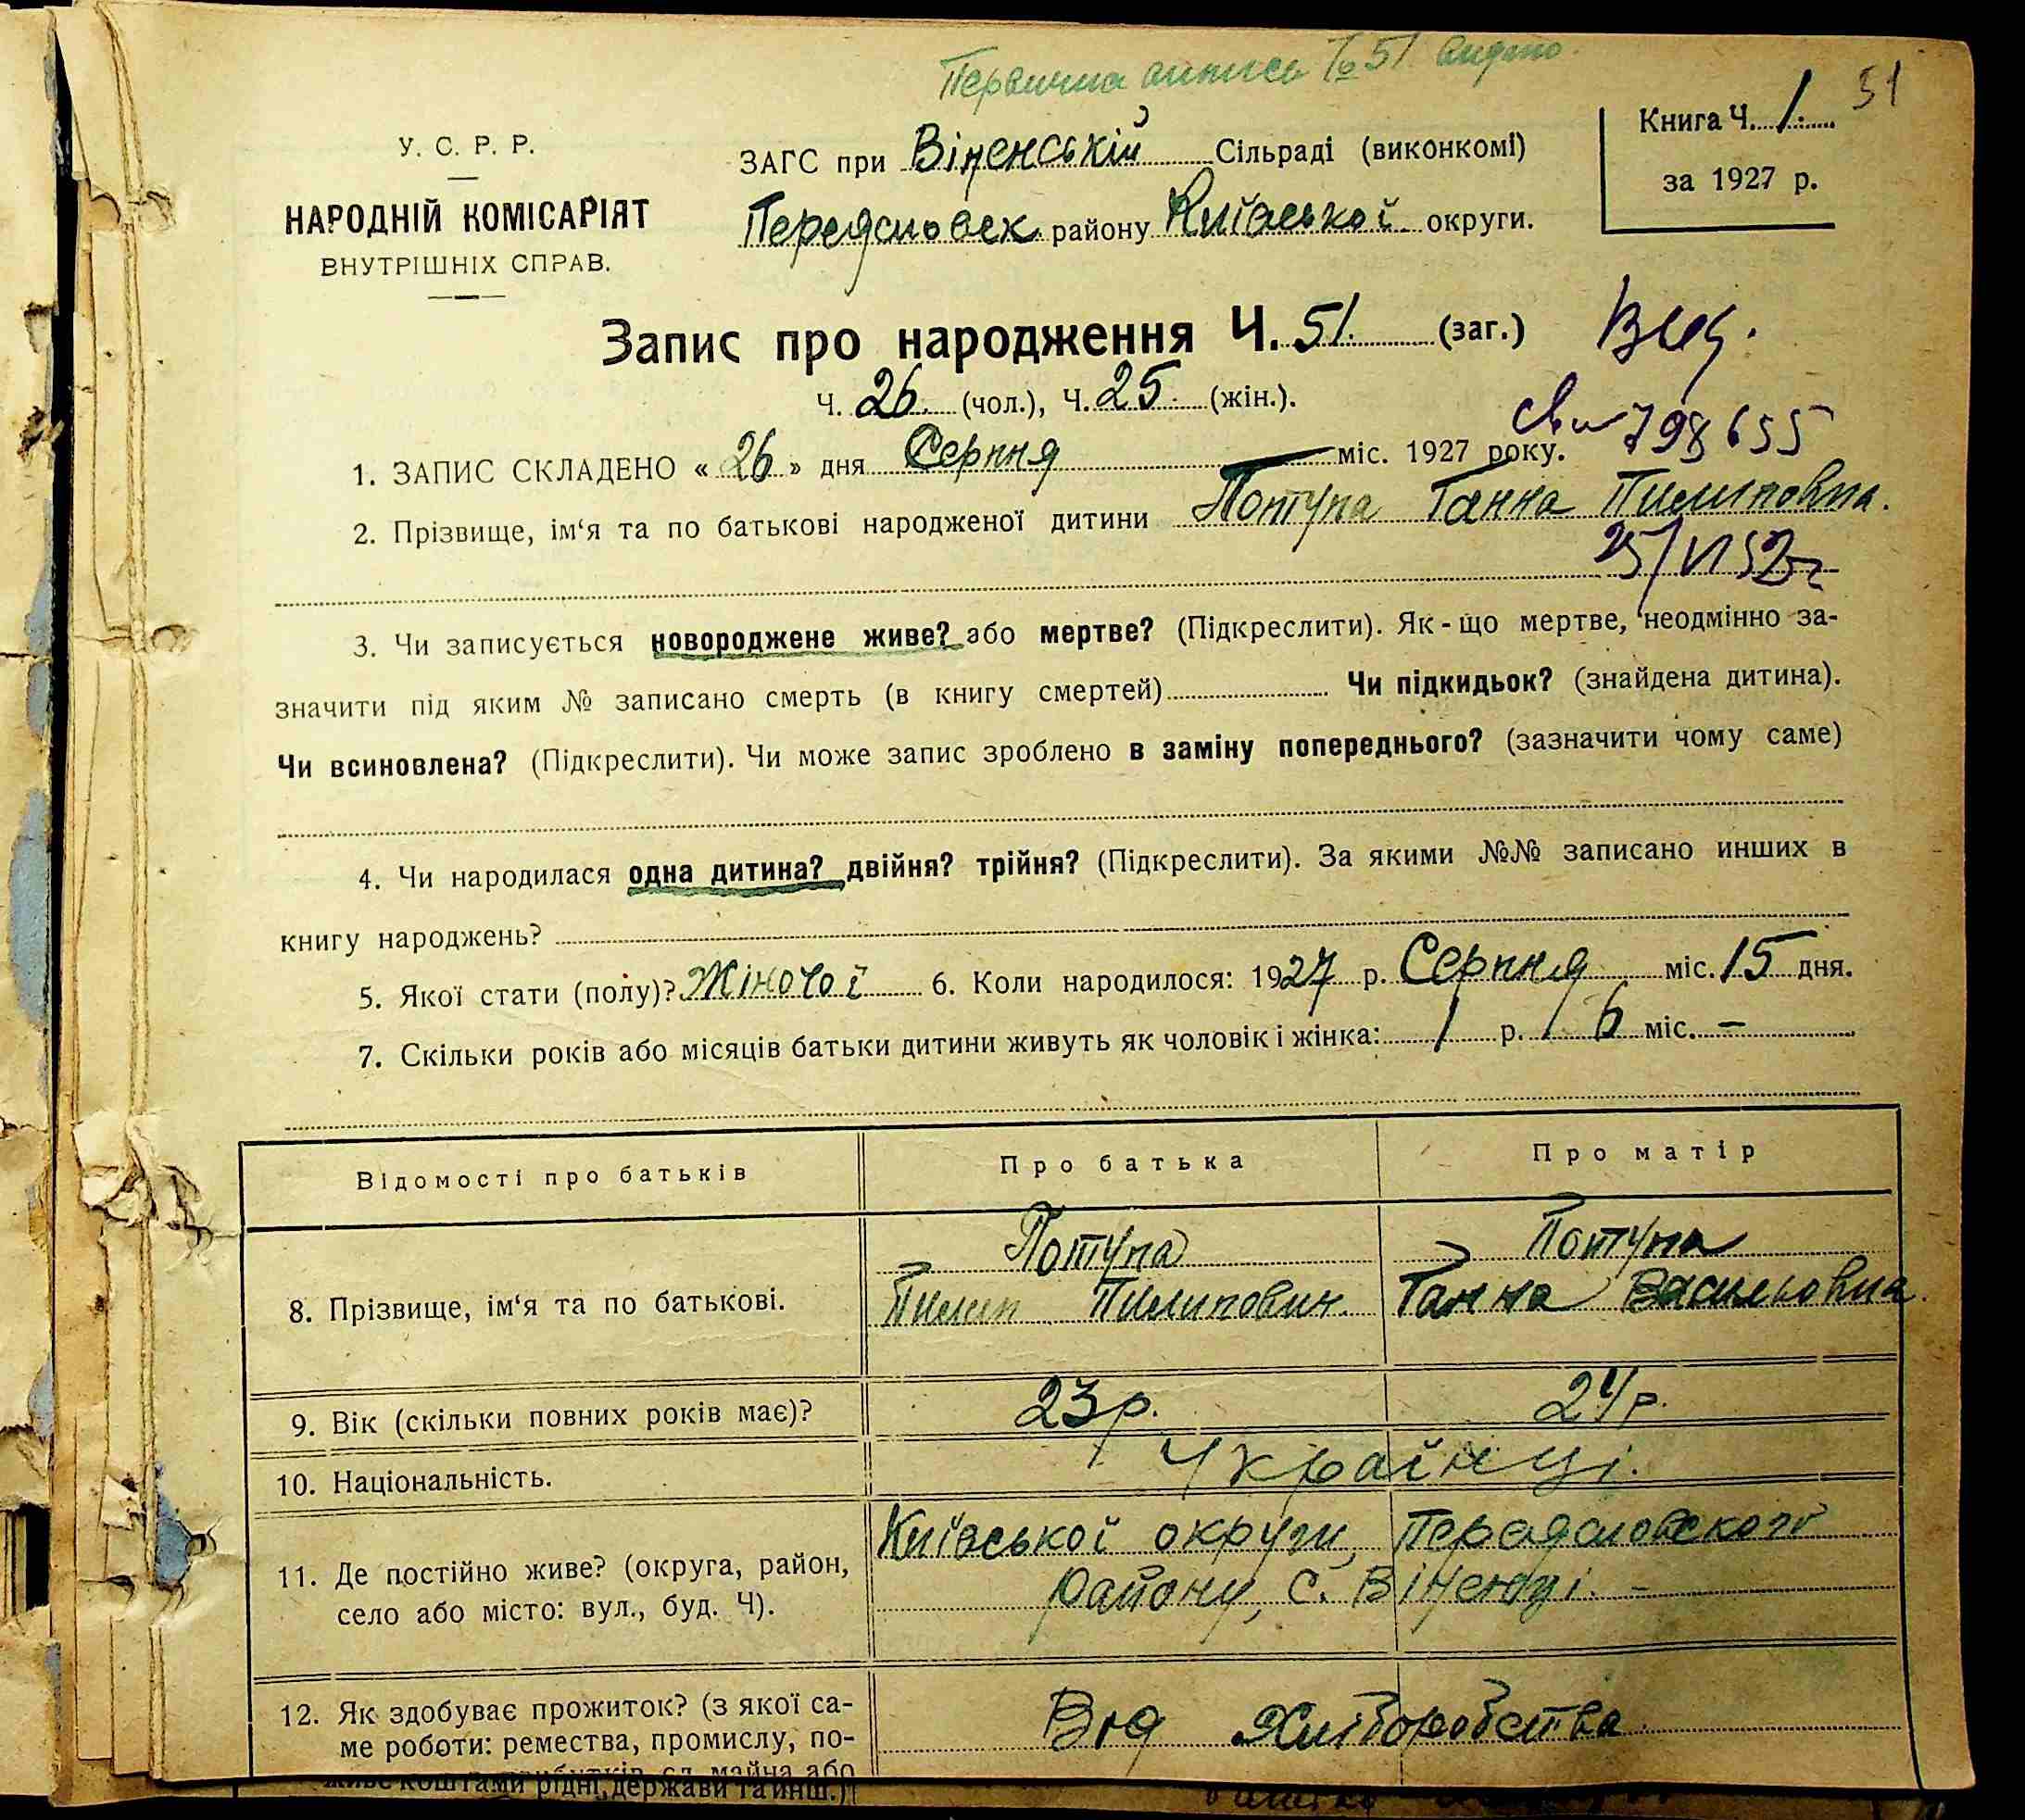 Первична выпись № 51 видано.
51
У. С. Р. Р.
НАРОДНІЙ КОМІСАРІЯТ
ВНУТРІШНІХ СПРАВ.
ЗАГС при Віненській Сільраді (виконкомі)
Передславск району Київської округи.
Книга Ч. 1.
за 1927 р.
Запис про народження Ч. 51. (заг.)
Ч. 26. (чол.), Ч. 25. (жін.).
Вид.
798655
1. ЗАПИС СКЛАДЕНО « 26 » дня Серпня міс. 1927 року.
2. Прізвище, ім‘я та по батькові народженої дитини Потупа Ганна Пилиповна.
25/VI 52 г
3. Чи записується новороджене живе? або мертве? (Підкреслити). Як-що мертве, неодмінно за-
значити під яким № записано смерть (в книгу смертей) Чи підкидьок? (знайдена дитина).
Чи всиновлена? (Підкреслити). Чи може запис зроблено в заміну попереднього? (зазначити чому саме)
4. Чи народилася одна дитина? двійня? трійня? (Підкреслити). За якими №№ записано инших в
книгу народжень?
5. Якої стати (полу)? Жіночої 6. Коли народилося: 1927 р. Серпня міс. 15 дня.
7. Скільки років або місяців батьки дитини живуть як чоловік і жінка: 1 р. / 6 міс. –
Відомості про батьків Про батька Про матір
Потупа Потупа
8. Прізвище, ім‘я та по батькові. Пилип Пилипович. Ганна Васильовна.
9. Вік (скільки повних років має)? 23 р. 24 р.
10. Національність. Українці.
11. Де постійно живе? (округа, район, Київської округи, Передславского
село або місто: вул., буд. Ч). району, с.
12. Як здобуває прожиток? (з якої са- Від Хліборобства
ме роботи: ремества, промислу, по-
живе коштами рідні, держави та инш.)